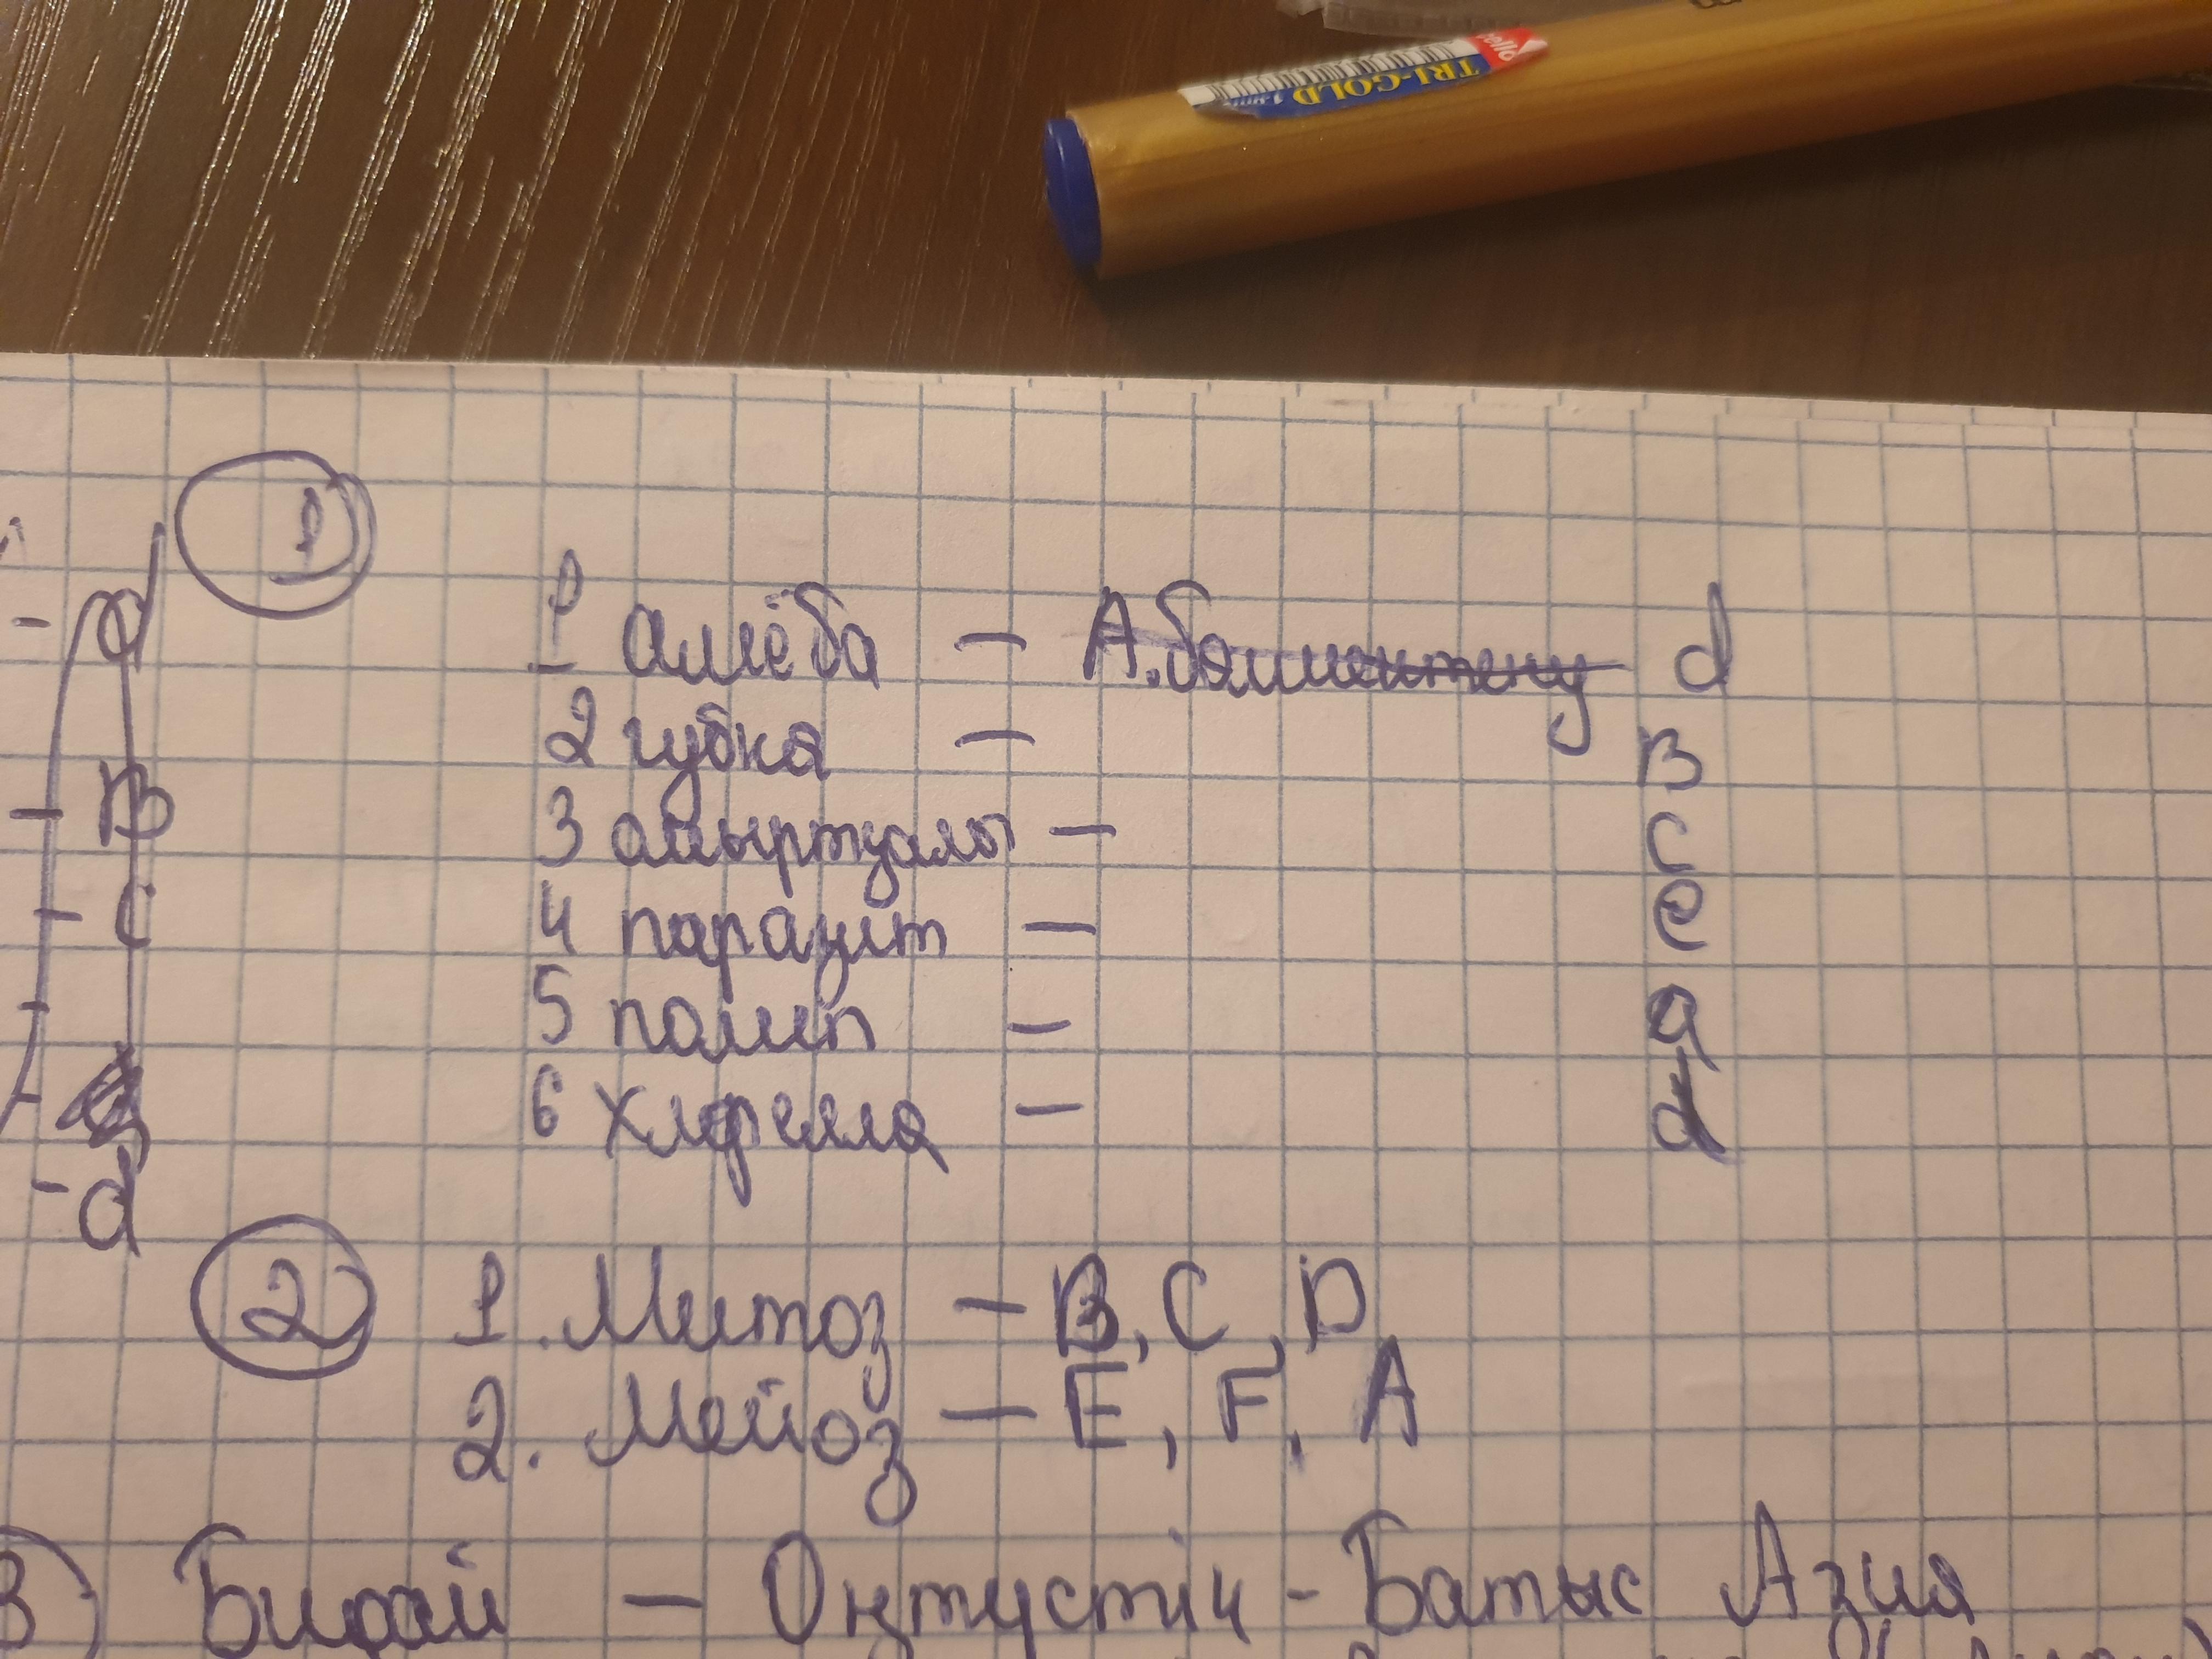 cello
TRI-GOLD
1
1 амёба - А. бөлшектену d
2 губка - B
3 айыртуалы - C
4 паразит - e
5 полип - a
6 хлорелла - d
B
C
- d
2
1. Митоз - B, C, D
2. Мейоз - E, F, A
3) Бидай - Оңтүстік - Батыс Азия